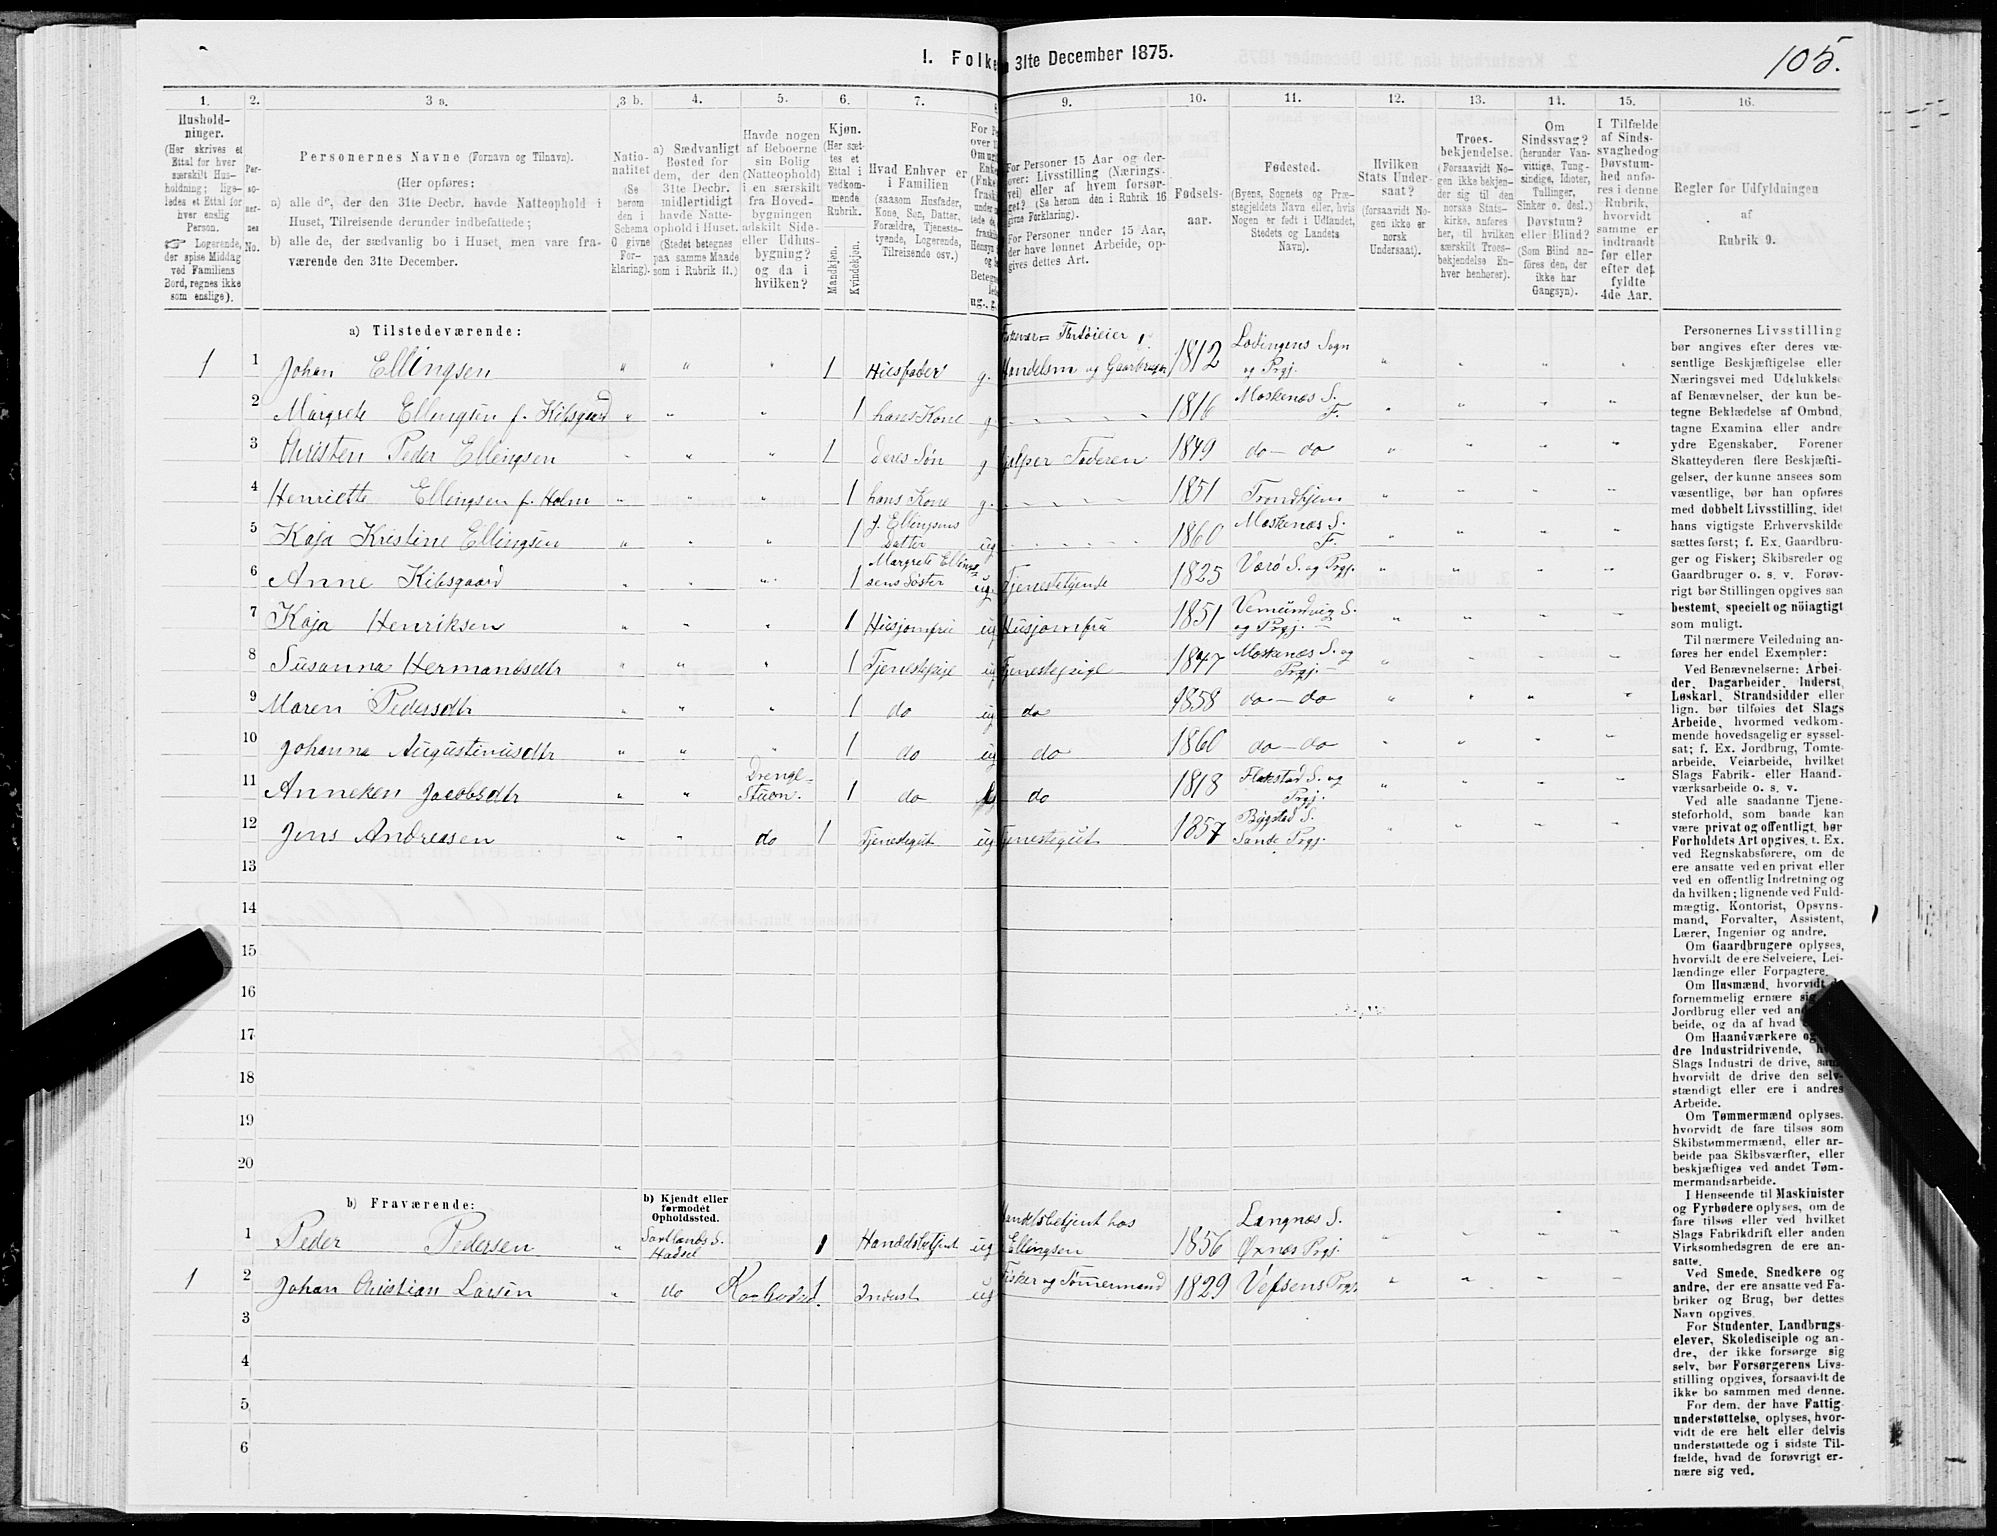 I. Folke
31te December 1875.
105.
1.
2.
3 a.
3 b.
4.
5.
6.
7.
9.
10.
11.
12.
13.
14.
15.
16.
Hushold-
ninger.
(Her skrives et
Ettal for hver
særskilt Hus-
holdning; lige-
ledes et Ettal for
hver enslig
Person.
☞ Logerende,
der spise Middag
ved Familiens
Bord, regnes ikke
som enslige).
Per-
so-
ner-
nes
No.
Personernes Navne (Fornavn og Tilnavn).
(Her opføres:
a) alle de, der den 31te Decbr. havde Natteophold i
Huset, Tilreisende derunder indbefattede;
b) alle de, der sædvanlig bo i Huset, men vare fra-
værende den 31te December.
Natio-
nalitet
(Se
herom
den i
Schema
O givne
For-
klaring).
a) Sædvanligt
Bosted for
dem, der den
31te Decbr.
midlertidigt
havde Natte-
ophold i Huset.
(Stedet betegnes
paa samme Maade
som i Rubrik 11.)
Havde nogen
af Beboerne
sin Bolig
(Natteophold)
i en særskilt
fra Hoved-
bygningen
adskilt Side-
eller Udhus-
bygning?
og da i
hvilken?
Kjøn.
(Her sæt-
tes et
Ettal i
vedkom-
mende
Rubrik.
Mandkjøn.
Kvindekjøn.
Hvad Enhver er
i Familien
(saasom Husfader,
Kone, Søn, Datter,
Forældre, Tjeneste-
tyende, Logerende,
Tilreisende osv.)
For Personer 15 Aar og der-
over: Livsstilling (Nærings-
vei) eller af hvem forsør-
get? (Se herom den i Rubrik 16
givne Forklaring).
For Personer under 15 Aar,
der have lønnet Arbeide, op-
gives dettes Art.
Fødsels-
aar.
Fødested.
(Byens, Sognets og Præ-
stegjeldets Navn eller, hvis
Nogen er født i Udlandet,
Stedets og Landets
Navn).
Hvilken
Stats Under-
saat?
(forsaavidt No-
gen ikke er
norsk
Undersaat).
Troes-
bekjendelse.
(Forsaavidt No-
gen ikke bekjen-
der sig til den
norske Stats-
kirke, anføres
her, til hvilken
særskilt Troes-
bekjendelse En-
hver henhører).
Om
Sindssvag?
(herunder Van-
vittige, Tung-
sindige, Idioter,
Tullinger,
Sinker o. desl.)
Døvstum?
eller Blind?
(Som Blind an-
føres den, der
ikke har
Gangsyn).
I Tilfælde
af Sinds-
svaghed og
Døvstum-
hed anfø-
res i denne
Rubrik,
hvorvidt
samme er
indtraadt
før eller
efter det
fyldte
4de Aar.
Regler for Udfyldningen
af
Rubrik 9.
a) Tilstedeværende:
1 1 Johan Ellingsen " " " 1 Husfader g. Handelsm og Gaardbruger 1812 Lodingens Sogn og Prgj.
2 Margrete Ellingsen f. Kibsgaard " " " 1 hans Kone g 1816 Moskenæs S. F.
3 Christen Peder Ellingsen " " " 1 deres Søn g hjelper Faderen 1849 do - do
4 Henriette Ellingsen f. Holm " " " 1 hans Kone g. 1851 Trondhjem
5 Kaja Kristine Ellingsen " " " 1 J. Ellingsens Datter ug 1860 Moskenæs S. F.
6 Anne Kibsgaard " " " 1 Margrete Ellingsens Søster ug. Tjenestetyende 1825 Værø S. og Prgj.
7 Kaja Henriksen " " " 1 Husjomfru ug Husjomfru 1851 Vemundvig S. og Prgj.
8 Susanna Hermansdtr " " " 1 Tjenestepige ug Tjenestepige 1847 Moskenæs S. og Prgj.
9 Maren Pedersdtr " " " 1 do ug do 1858 do - do
10 Johanna Augustinusdtr " " " 1 do ug do 1860 do - do
11 Anneken Jacobsdtr " " Drenge-Stuen. 1 do do 1818 Flakstad S. og Prgj.
12 Jens Andreasen " " do 1 Tjenestegut ug Tjenestegut 1857 Bygstad S. Sande Prgj.
13
14
15
16
17
18
19
20
b) Fraværende:
b) Kjendt eller
formodet
Opholdssted.
1 Peder Pedersen " Sortlands S. Hadsel 1 Handelsbetjent ug Handelsbetjent hos Ellingsen 1856 Langnæs S. Øxnæs Prgj.
1 2 Johan Christian Larsen " do 1 Inderst ug Fisker og Tømmermand 1829 Vefsens Prgj.
3
4
5
6
Personernes Livsstilling
bør angives efter deres væ-
sentlige Beskjæftigelse eller
Næringsvei med Udelukkelse
af Benævnelser, der kun be-
tegne Beklædelse af Ombud,
tagne Examina eller andre
ydre Egenskaber. Forener
Skatteyderen flere Beskjæfti-
gelser, der kunne ansees som
væsentlige, bør han opføres
med dobbelt Livsstilling, idet
hans vigtigste Erhvervskilde
sættes først; f. Ex. Gaardbru-
ger og Fisker; Skibsreder og
Gaardbruger o. s. v. Forøv-
rigt bør Stillingen opgives saa
bestemt, specielt og nöiagtigt
som muligt.
Til nærmere Veiledning an-
føres her endel Exempler:
Ved Benævnelserne: Arbei-
der, Dagarbeider, Inderst,
Løskarl, Strandsidder eller
lign. bør tilføies det Slags
Arbeide, hvormed vedkom-
mende hovedsagelig er syssel-
sat; f. Ex. Jordbrug, Tomte-
arbeide, Veiarbeide, hvilket
Slags Fabrik- eller Haand-
værksarbeide o. s. v.
Ved alle saadanne Tjene-
steforhold, som baade kan
være privat og offentligt, bør
Forholdets Art opgives, t. Ex.
ved Regnskabsførere, om de
ere ansatte ved en privat eller
ved en offentlig Indretning og
da hvilken; lignende ved Fuld-
mægtig, Kontorist, Opsyns-
mand, Forvalter, Assistent,
Lærer, Ingeniør og andre.
Om Gaardbrugere oplyses,
hvorvidt de ere Selveiere, Lei-
lændinge eller Forpagtere.
Om Husmænd, hvorvidt
fornemmelig ernære sig
Jordbrug eller ved an
beide, og da af hvad
Om Haandværkere og
dre Industridrivende,
Slags Industri de drive, sam
hvorvidt de drive den selv-
stændigt eller ere i andres
Arbeide.
Om Tømmermænd oplyses,
hvorvidt de fare tilsøs som
Skibstømmermænd, eller ar-
beide paa Skibsværfter, eller
beskjæftiges ved andet Tøm-
mermandsarbeide.
I Henseende til Maskinister
og Fyrbødere oplyses, om de
fare tilsøs eller ved hvilket
Slags Fabrikdrift eller anden
Virksomhedsgren de ere an-
satte.
Ved Smede, Snedkere og
andre, der ere ansatte ved Fa-
briker og Brug, bør dettes
Navn opgives.
For Studenter, Landbrugs-
elever, Skoledisciple og an-
dre, der ikke forsørge sig
selv, bør Forsørgerens Livs-
stilling opgives, forsaavidt de
ikke bo sammen med denne.
For dem, der have Fattig-
understøttelse, oplyses, hvor-
vidt de ere helt eller delvis
understøttede og i sidste Til-
fælde, hvad de forøvrigt er-
nære sig ved.